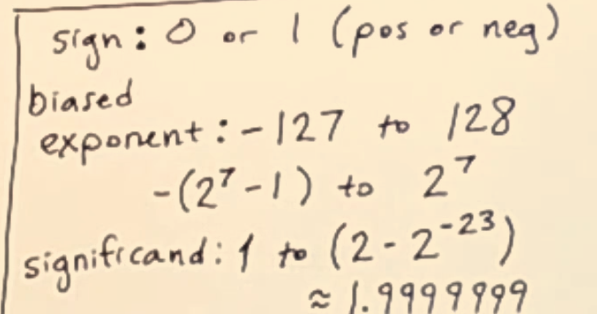 sign: 0 or 1 (pos or neg)
biased
exponent: -127 to 128
-(2⁷-1) to 2⁷
significand: 1 to (2-2⁻²³)
≈ 1.9999999